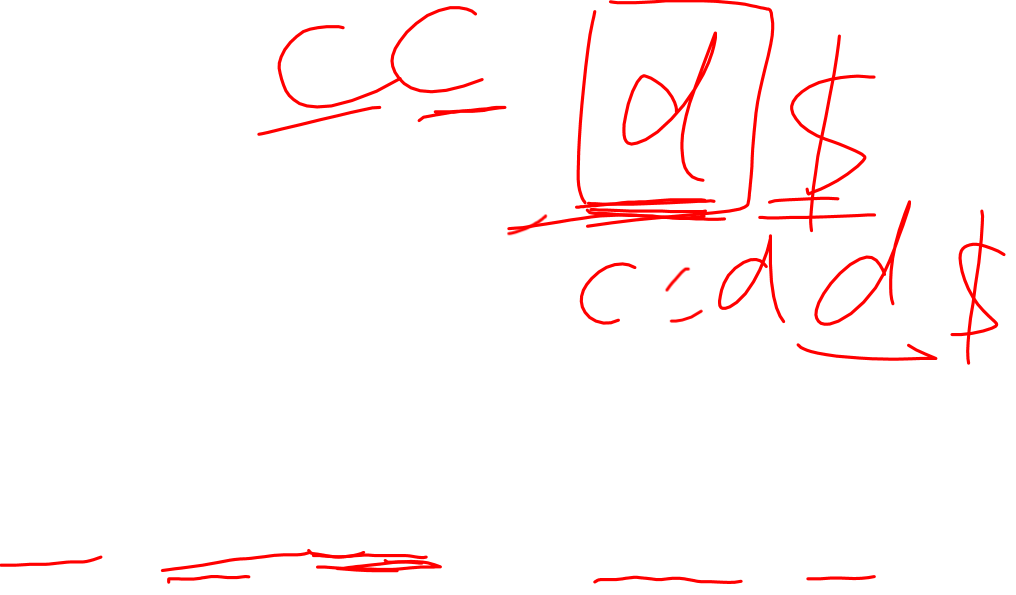 CC d $
c : d d $